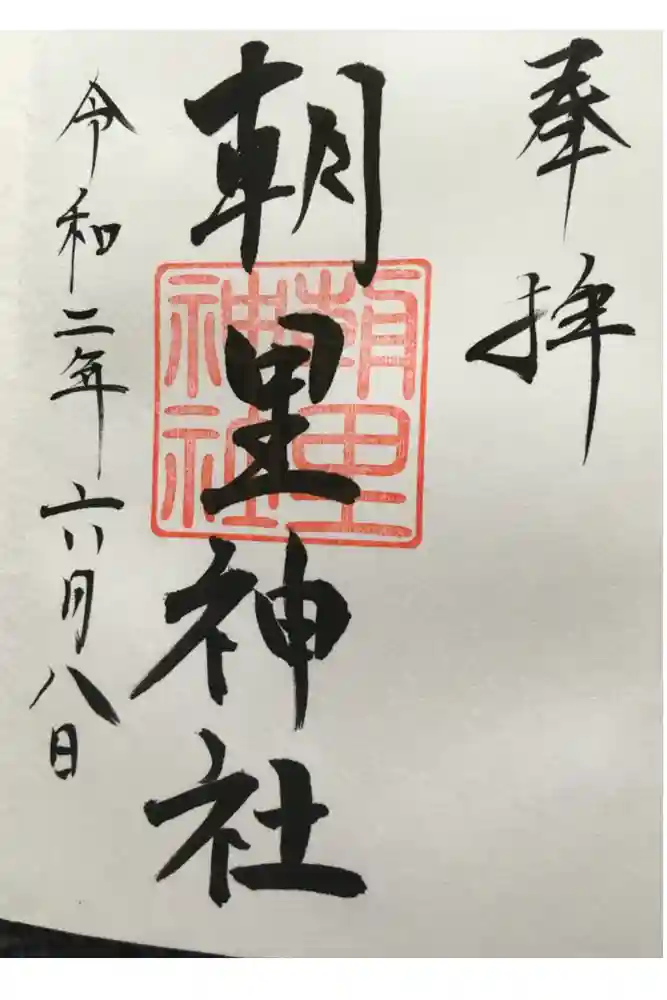 奉拝
朝里神社
朝里
神社
令和二年六月八日